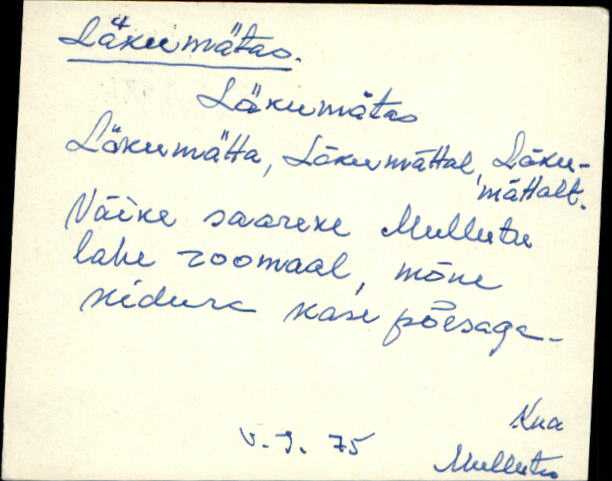 Läkumätas.
Läkumätas
Läkumätta, Läkumättal, Läku-
mättalt.
Väike saareke Mullutu
lahe roomaal, mõne
kidura kase põõsaga.
V. J. 75
Kua
Mullutu